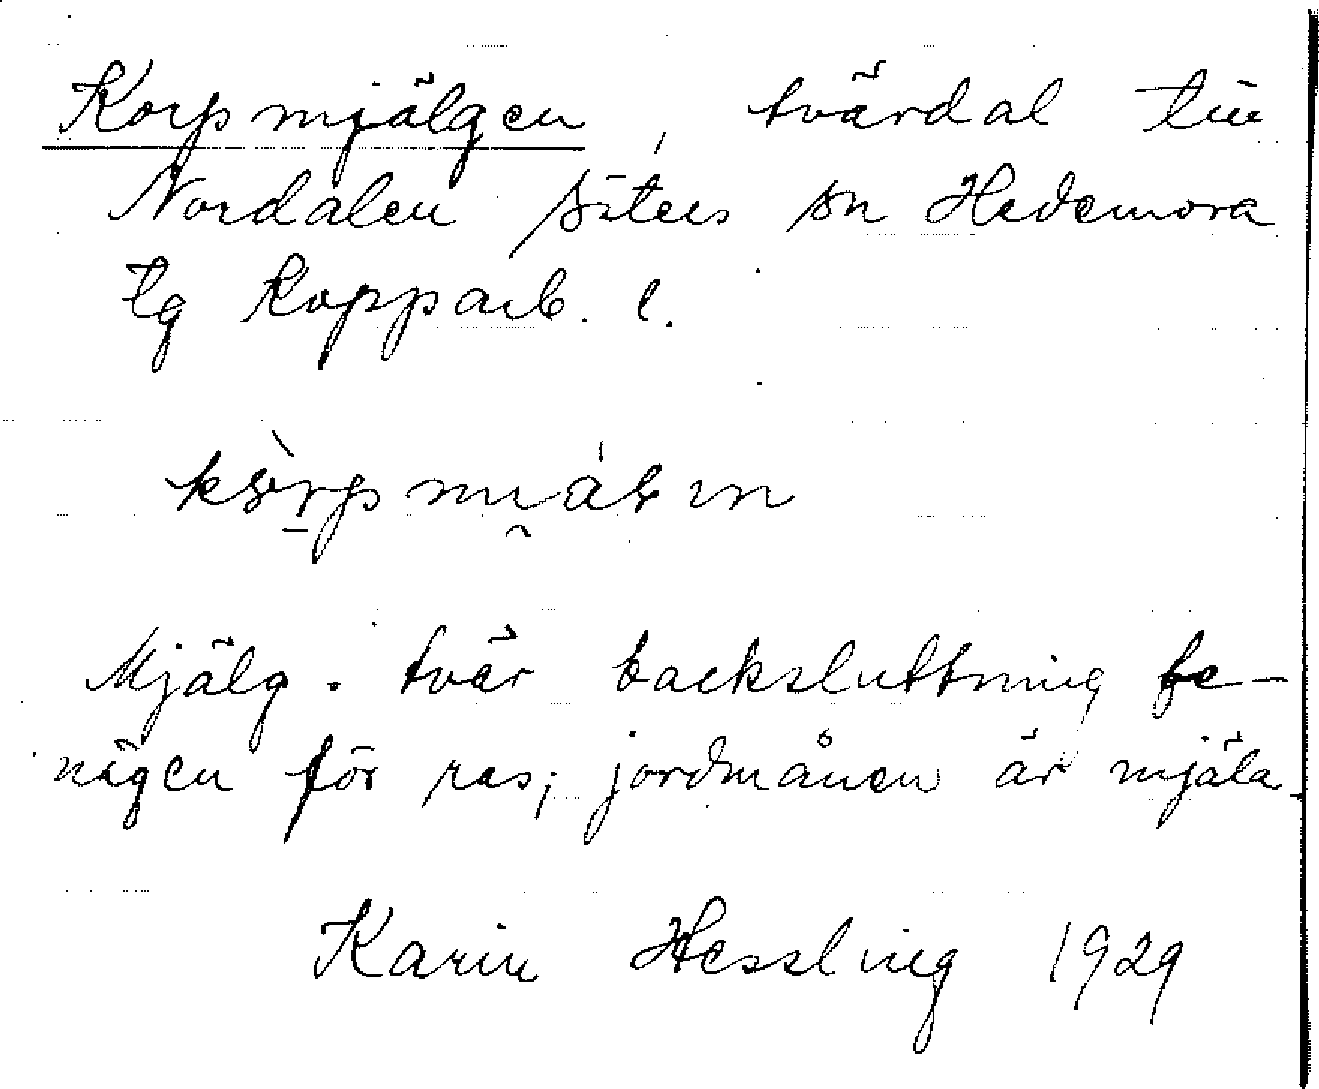 Korpmjälgen, tvärdal till
Nordalen Säters sn Hedemora
tg Kopparb. l.
Mjälg. tvär backsluttning be-
nägen för ras; jordmånen är mjäla.
Karin Hessling 1929